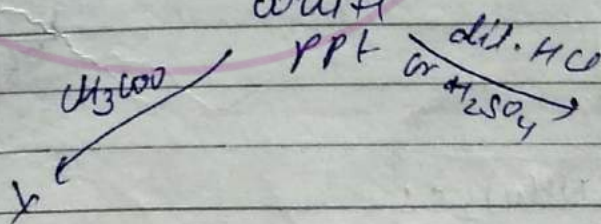 ppt
dil. HCl
or H2SO4
CH3COO
X